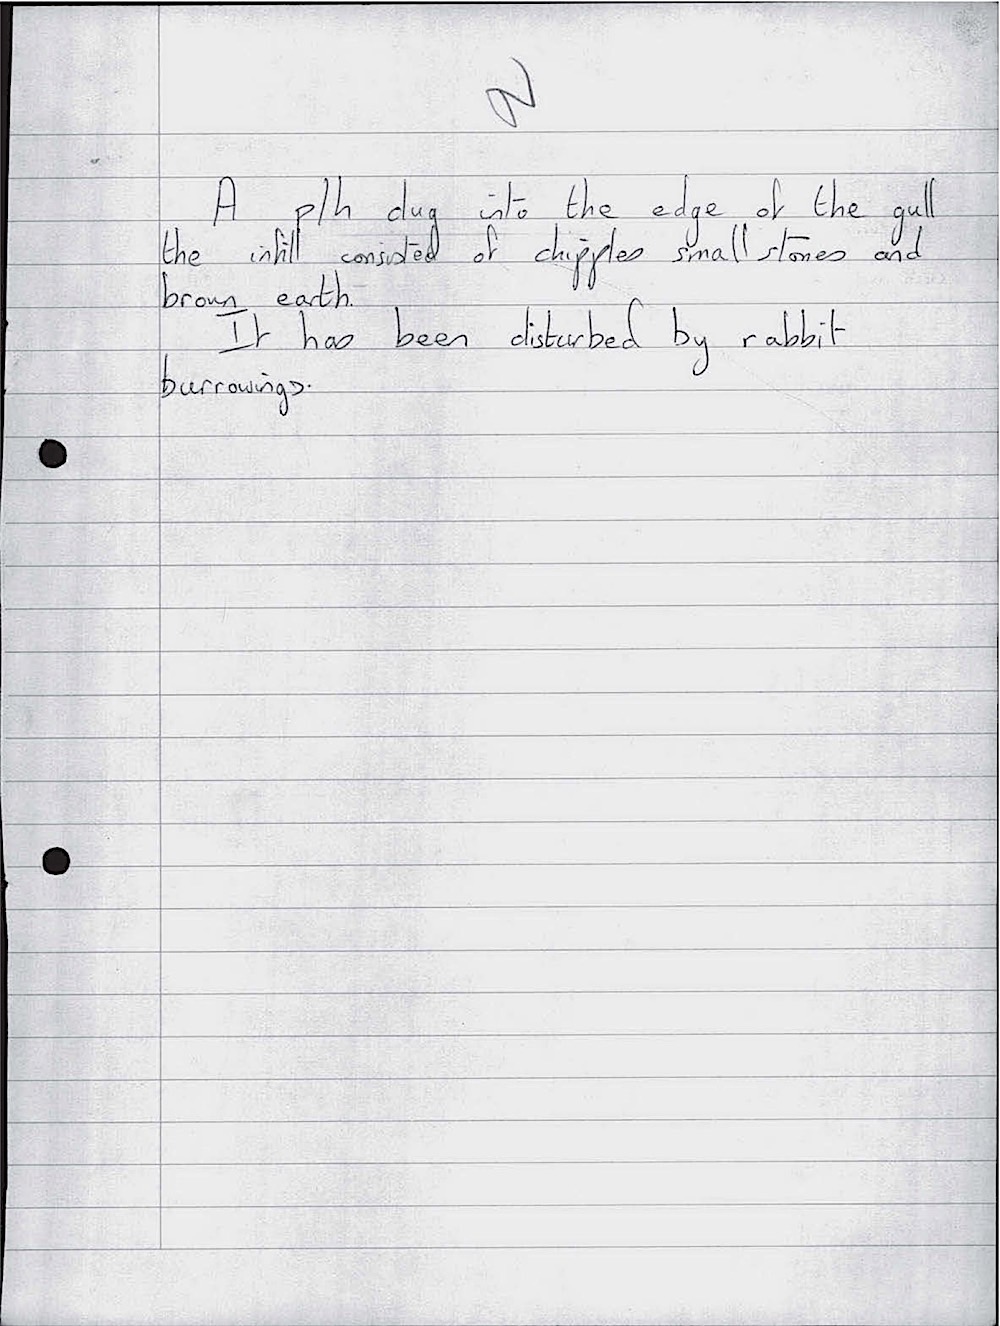 A p/h dug into the edge of the gull
the infill consisted of chipples small stones and
brown earth.
It has been disturbed by rabbit
burrowings.